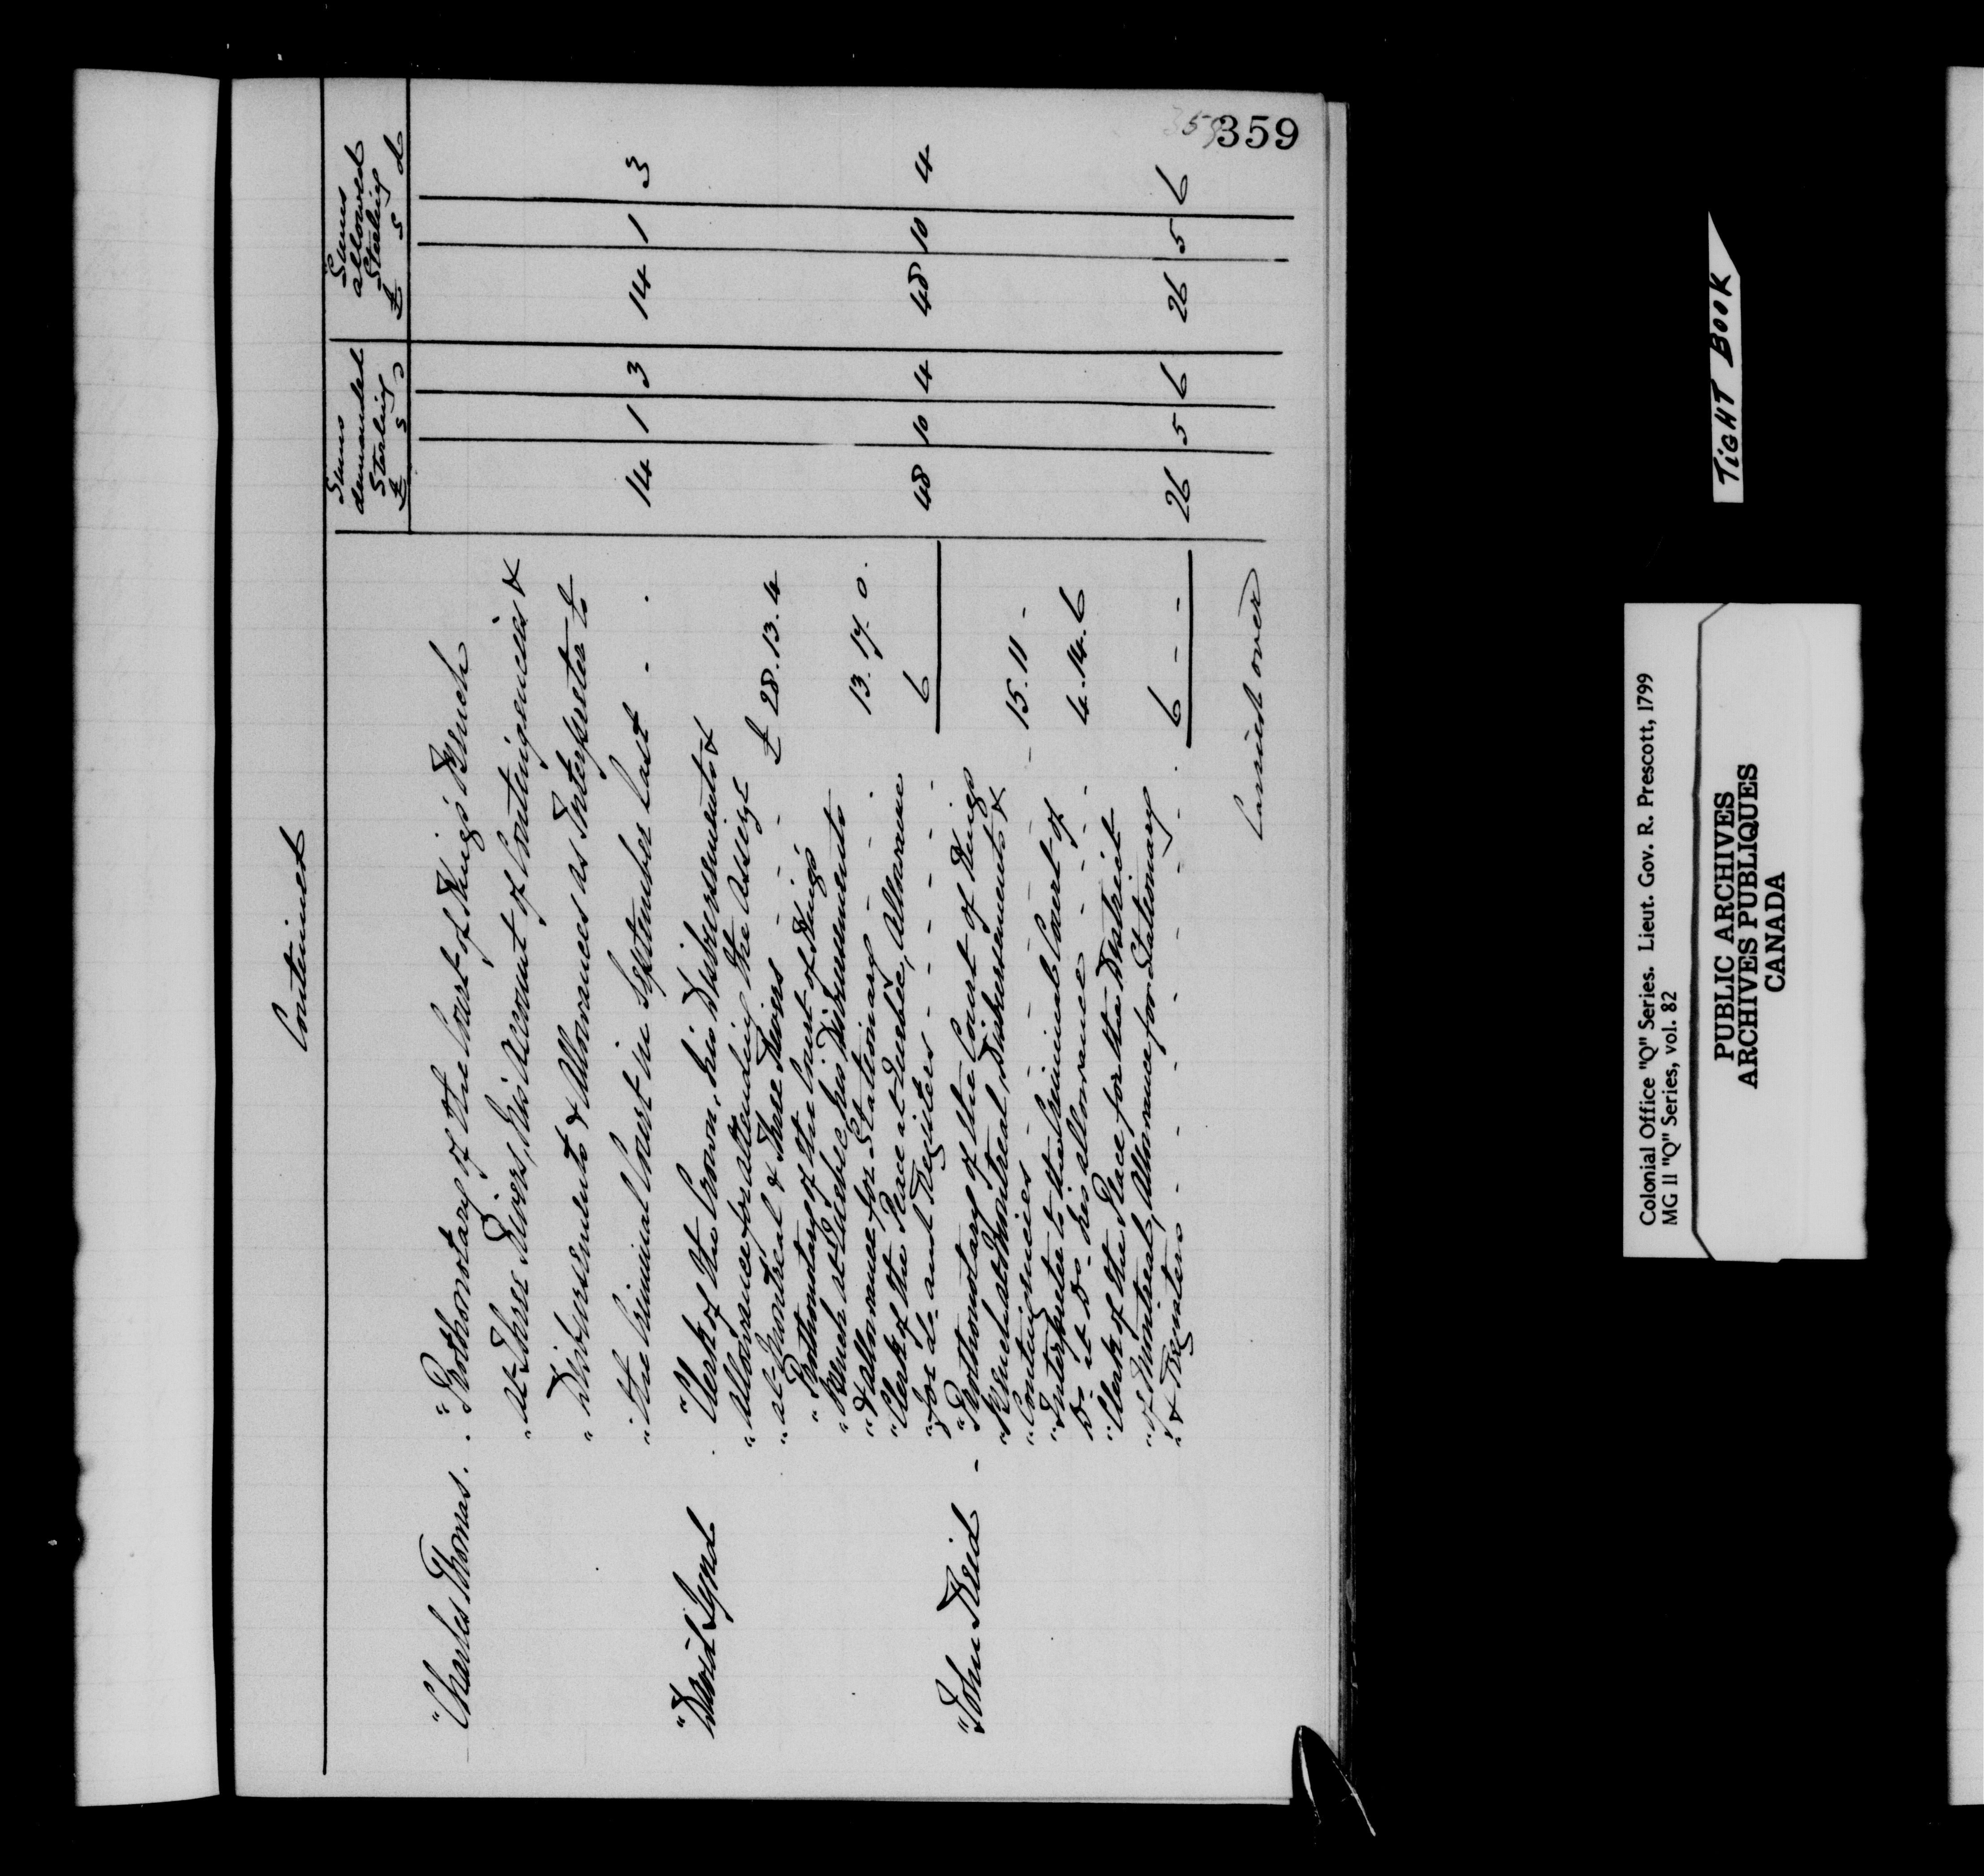 359
359
Continued
Sums demanded Sterling £ s d
Sums allowed Sterling £ s d
"Charles Thomas. . "Prothonotary of the Court of King's Bench
"at Three Rivers, His Account of Contingencies &
"Disbursements & Allowances as Interpreter to
"the Criminal Court in September last - . 14 1 3 14 1 3
"David Lynd . "Clerk of the Crown, his Disbursements &
"Allowance for attending the Assize
"at Montreal & Three Rivers - - - £ 28.13.4
"Prothonotary of the Court of King's
"Bench at Quebec, his Disbursements
"& allowance for Stationary - - . 13.17.0.
"Clerk of the Peace at Quebec, Allowance
"for do and Register - - - - - 6 48 10 4 48 10 4
"John Reid - "Prothonotary of the Court of Kings
"Bench at Montreal, Disbursements &
"Contingencies - - - - - 15.11 -
"Interpreter to the Criminal Court of
Do at Do his allowance - - - - 4.14.6
"Clerk of the Peace for the District
"of Montreal, Allowance for Stationary
"& Registers - - - - - . 6 - - 26 5 6 26 5 6
Carried over
TIGHT BOOK
Colonial Office "Q" Series. Lieut. Gov. R. Prescott, 1799
MG 11 "Q" Series, vol. 82
PUBLIC ARCHIVES
ARCHIVES PUBLIQUES
CANADA